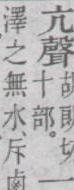 亢聲胡朗切十部。一
澤之無水、斥鹵